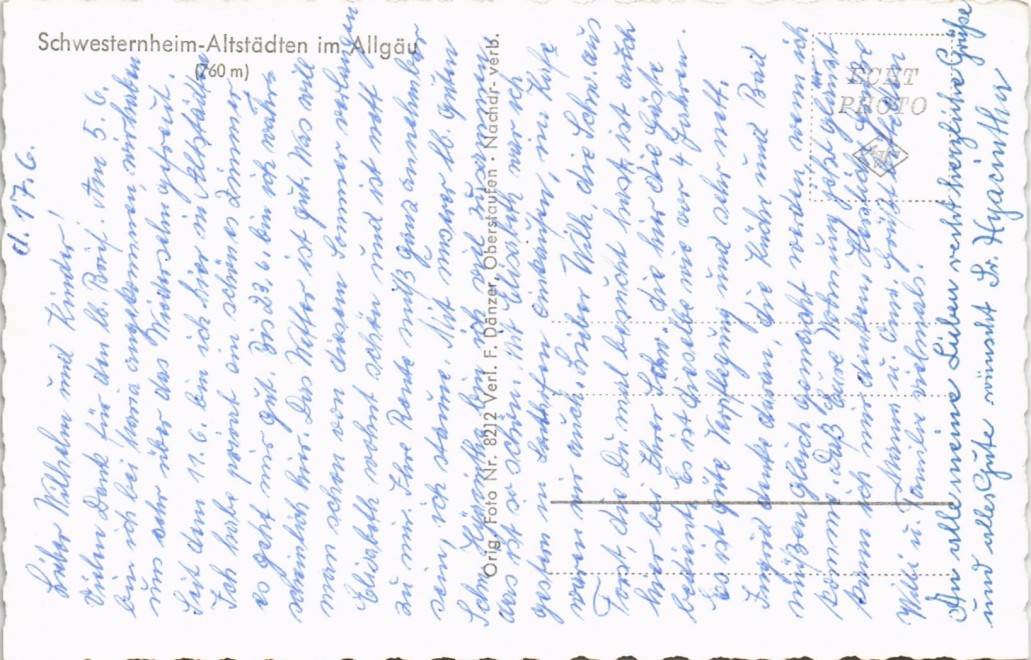 Schwesternheim-Altstädten im Allgäu
(760 m)
Orig. Foto Nr. 8212 Verl. F. Dänzer, Oberstaufen • Nachdr. verb.
ECHT
PHOTO
d. 17. 6.
Lieber Wilhelm und Kinder!
Vielen Dank für den lb. Brief. Am 5. 6.
bin ich bei Maria angekommen, wir haben
uns sehr über das Wiedersehn gefreut.
Seit dem 11. 6. bin ich hier in Altstädten
Ich habe prima ein schönes Zimmer
es geht mir gut. Bis 23. 6. bin ich wahr-
scheinlich hier. Das Wetter ist gut. Was will
man schon von diesem Sommer verlangen
Elisabeth wohnt schön und ist nett
zu mir. Ihre Rente muß ganz annehmbar
sein, ich staune. Mit unserer lb. guten
Schw. bin ich viel zusammen
das ist so schön. Mit Elisabeth war ich
gestern in einkaufen, im Kaffe
waren wir auch. Lieber Wilh. die Schw. aus
Forst, die Du mal besucht hast ist auch
hier bei Ihrer Schw. die hier die Gäste
bedient. Es ist dieselbe wie vor 4 Jahren.
Es ist gute Verpflegung und sehr nett.
Ingrid denke daran, die Küche und Bad
müßen gleich gemacht werden wenn ich
komme. Daß Eure Wohnung jetzt glänzt
kann ich mir denken. Herzliche Grüße
Willi u. Familie vielmals.
An alle meine Lieben recht herzliche Grüße
und alles Gute wünscht Sr. Hyacintha